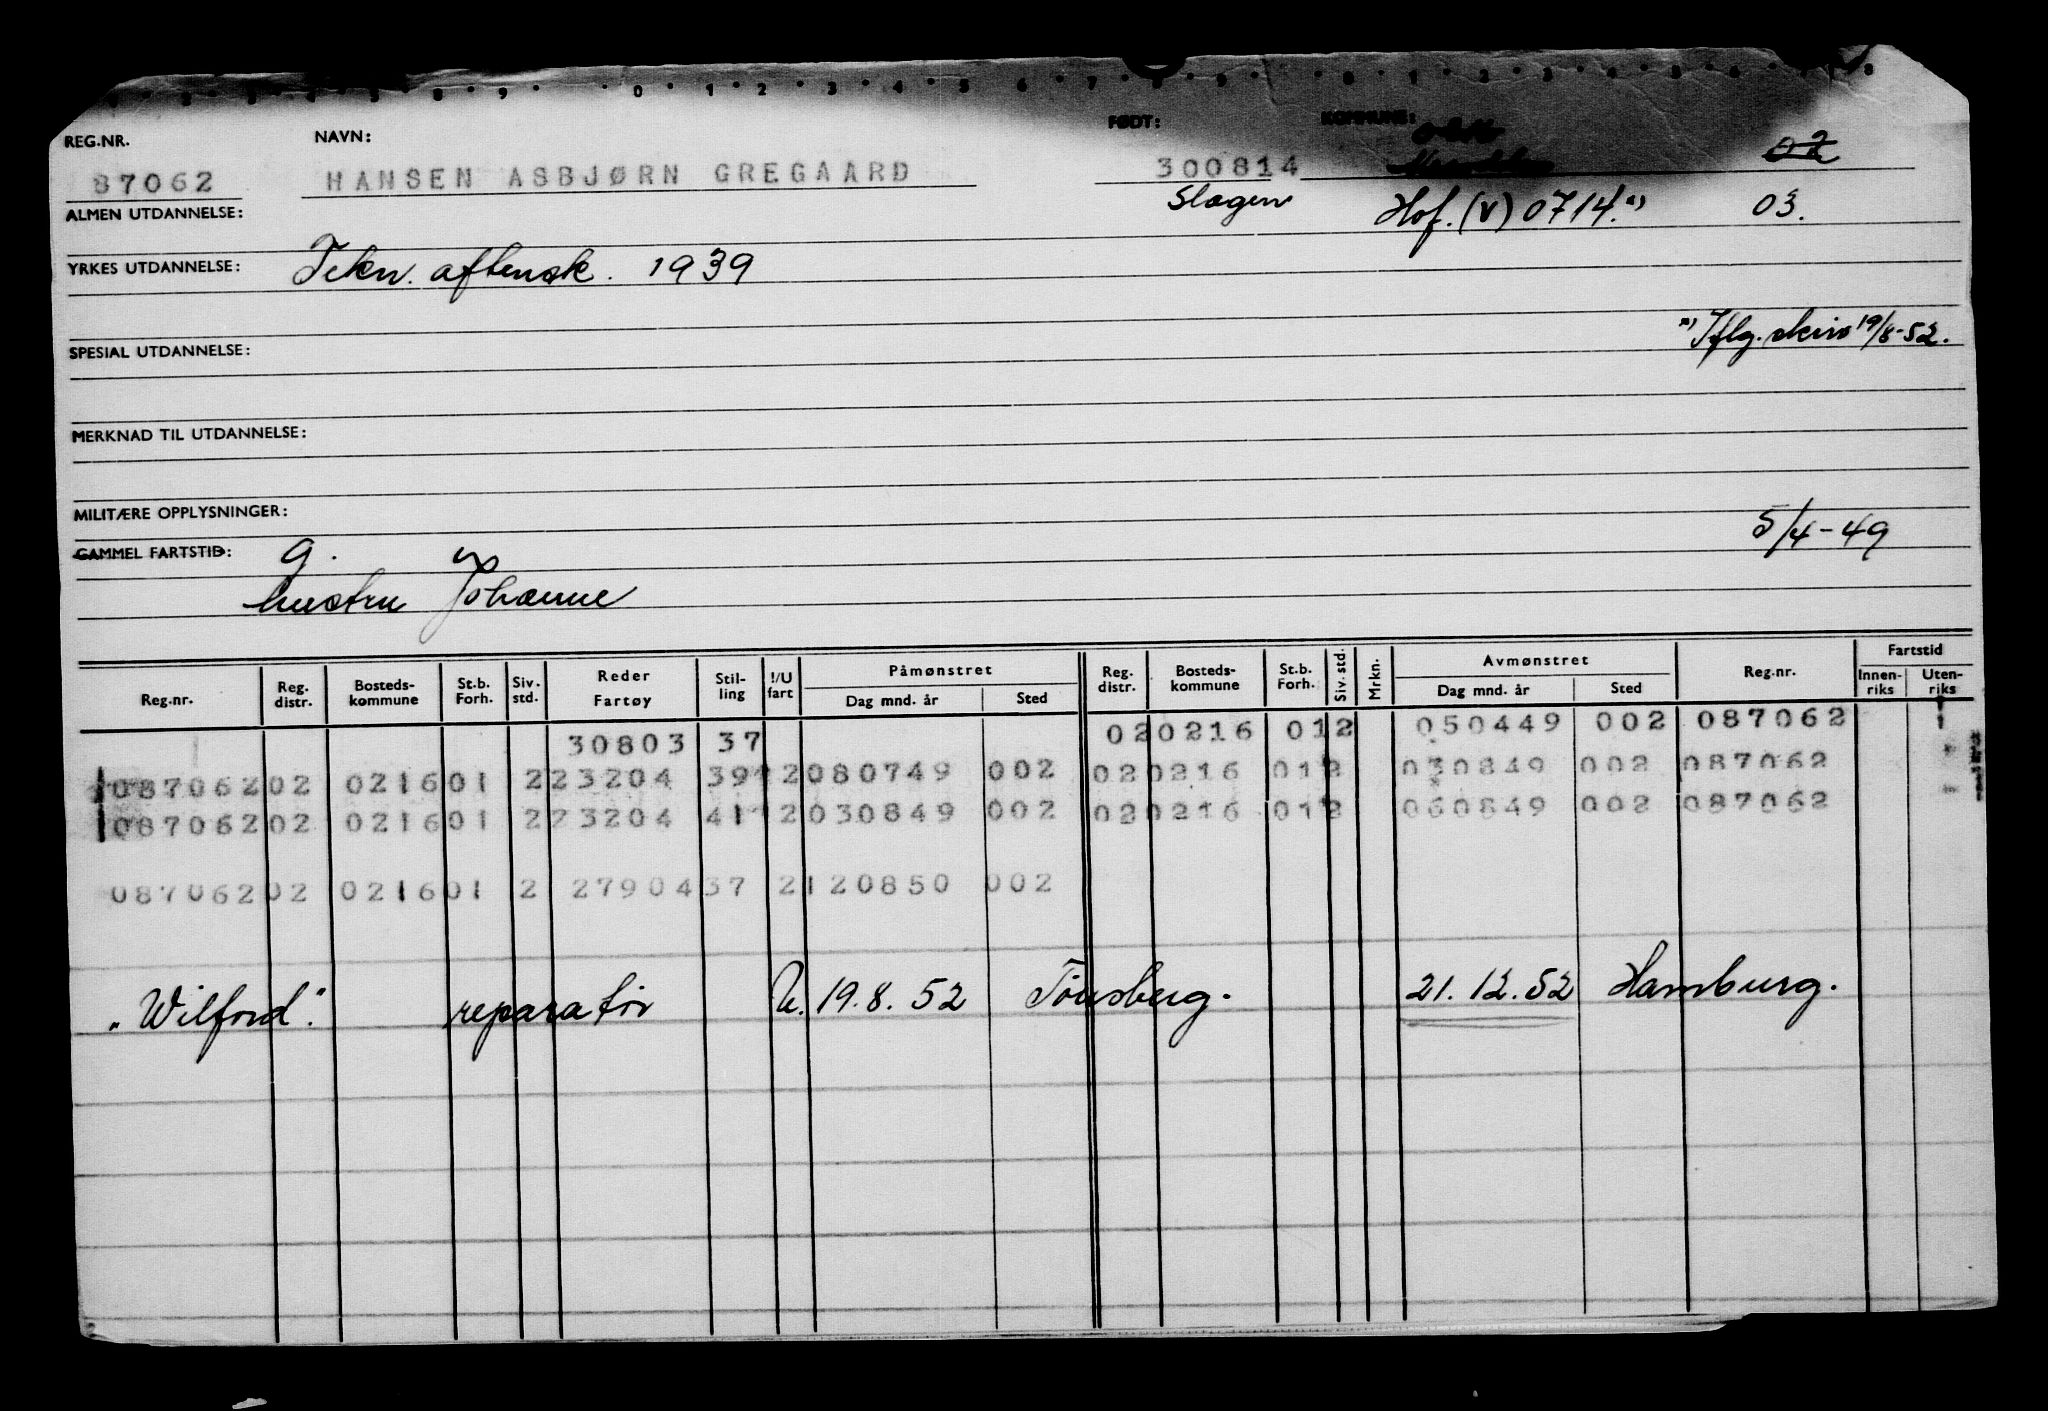 REG.NR. NAVN: FØDT: KOMMUNE:
87062 HANSEN ASBJØRN GREGAARD 300814 02
ALMEN UTDANNELSE: Slagen Hof. (V) 0714. 03.
YRKES UTDANNELSE: Tekn. aftensk. 1939
Iflg. skriv 19/8-52.
SPESIAL UTDANNELSE:
MERKNAD TIL UTDANNELSE:
MILITÆRE OPPLYSNINGER:
GAMMEL FARTSTID: g. 5/4-49
hustru Johanne
Reg.nr. Reg. distr. Bosteds-kommune St.b. Forh. Siv. std. Reder Fartøy Stil-ling I/U fart Påmønstret Dag mnd. år Sted Reg. distr. Bosteds-kommune St.b. Forh. Siv. std. Mrkn. Avmønstret Dag mnd. år Sted Reg.nr. Fartstid Innen-riks Uten-riks
30803 37 02 0216 01 2 050449 002 087062
087062 02 0216 01 2 23204 39 2 080749 002 02 0216 01 2 030849 002 087062
087062 02 0216 01 2 23204 41 2 030849 002 02 0216 01 2 060849 002 087062
087062 02 0216 01 2 27904 37 2 120850 002
"Wilford". reparatør U. 19.8.52 Tönsberg. 21.12.52 Hamburg.